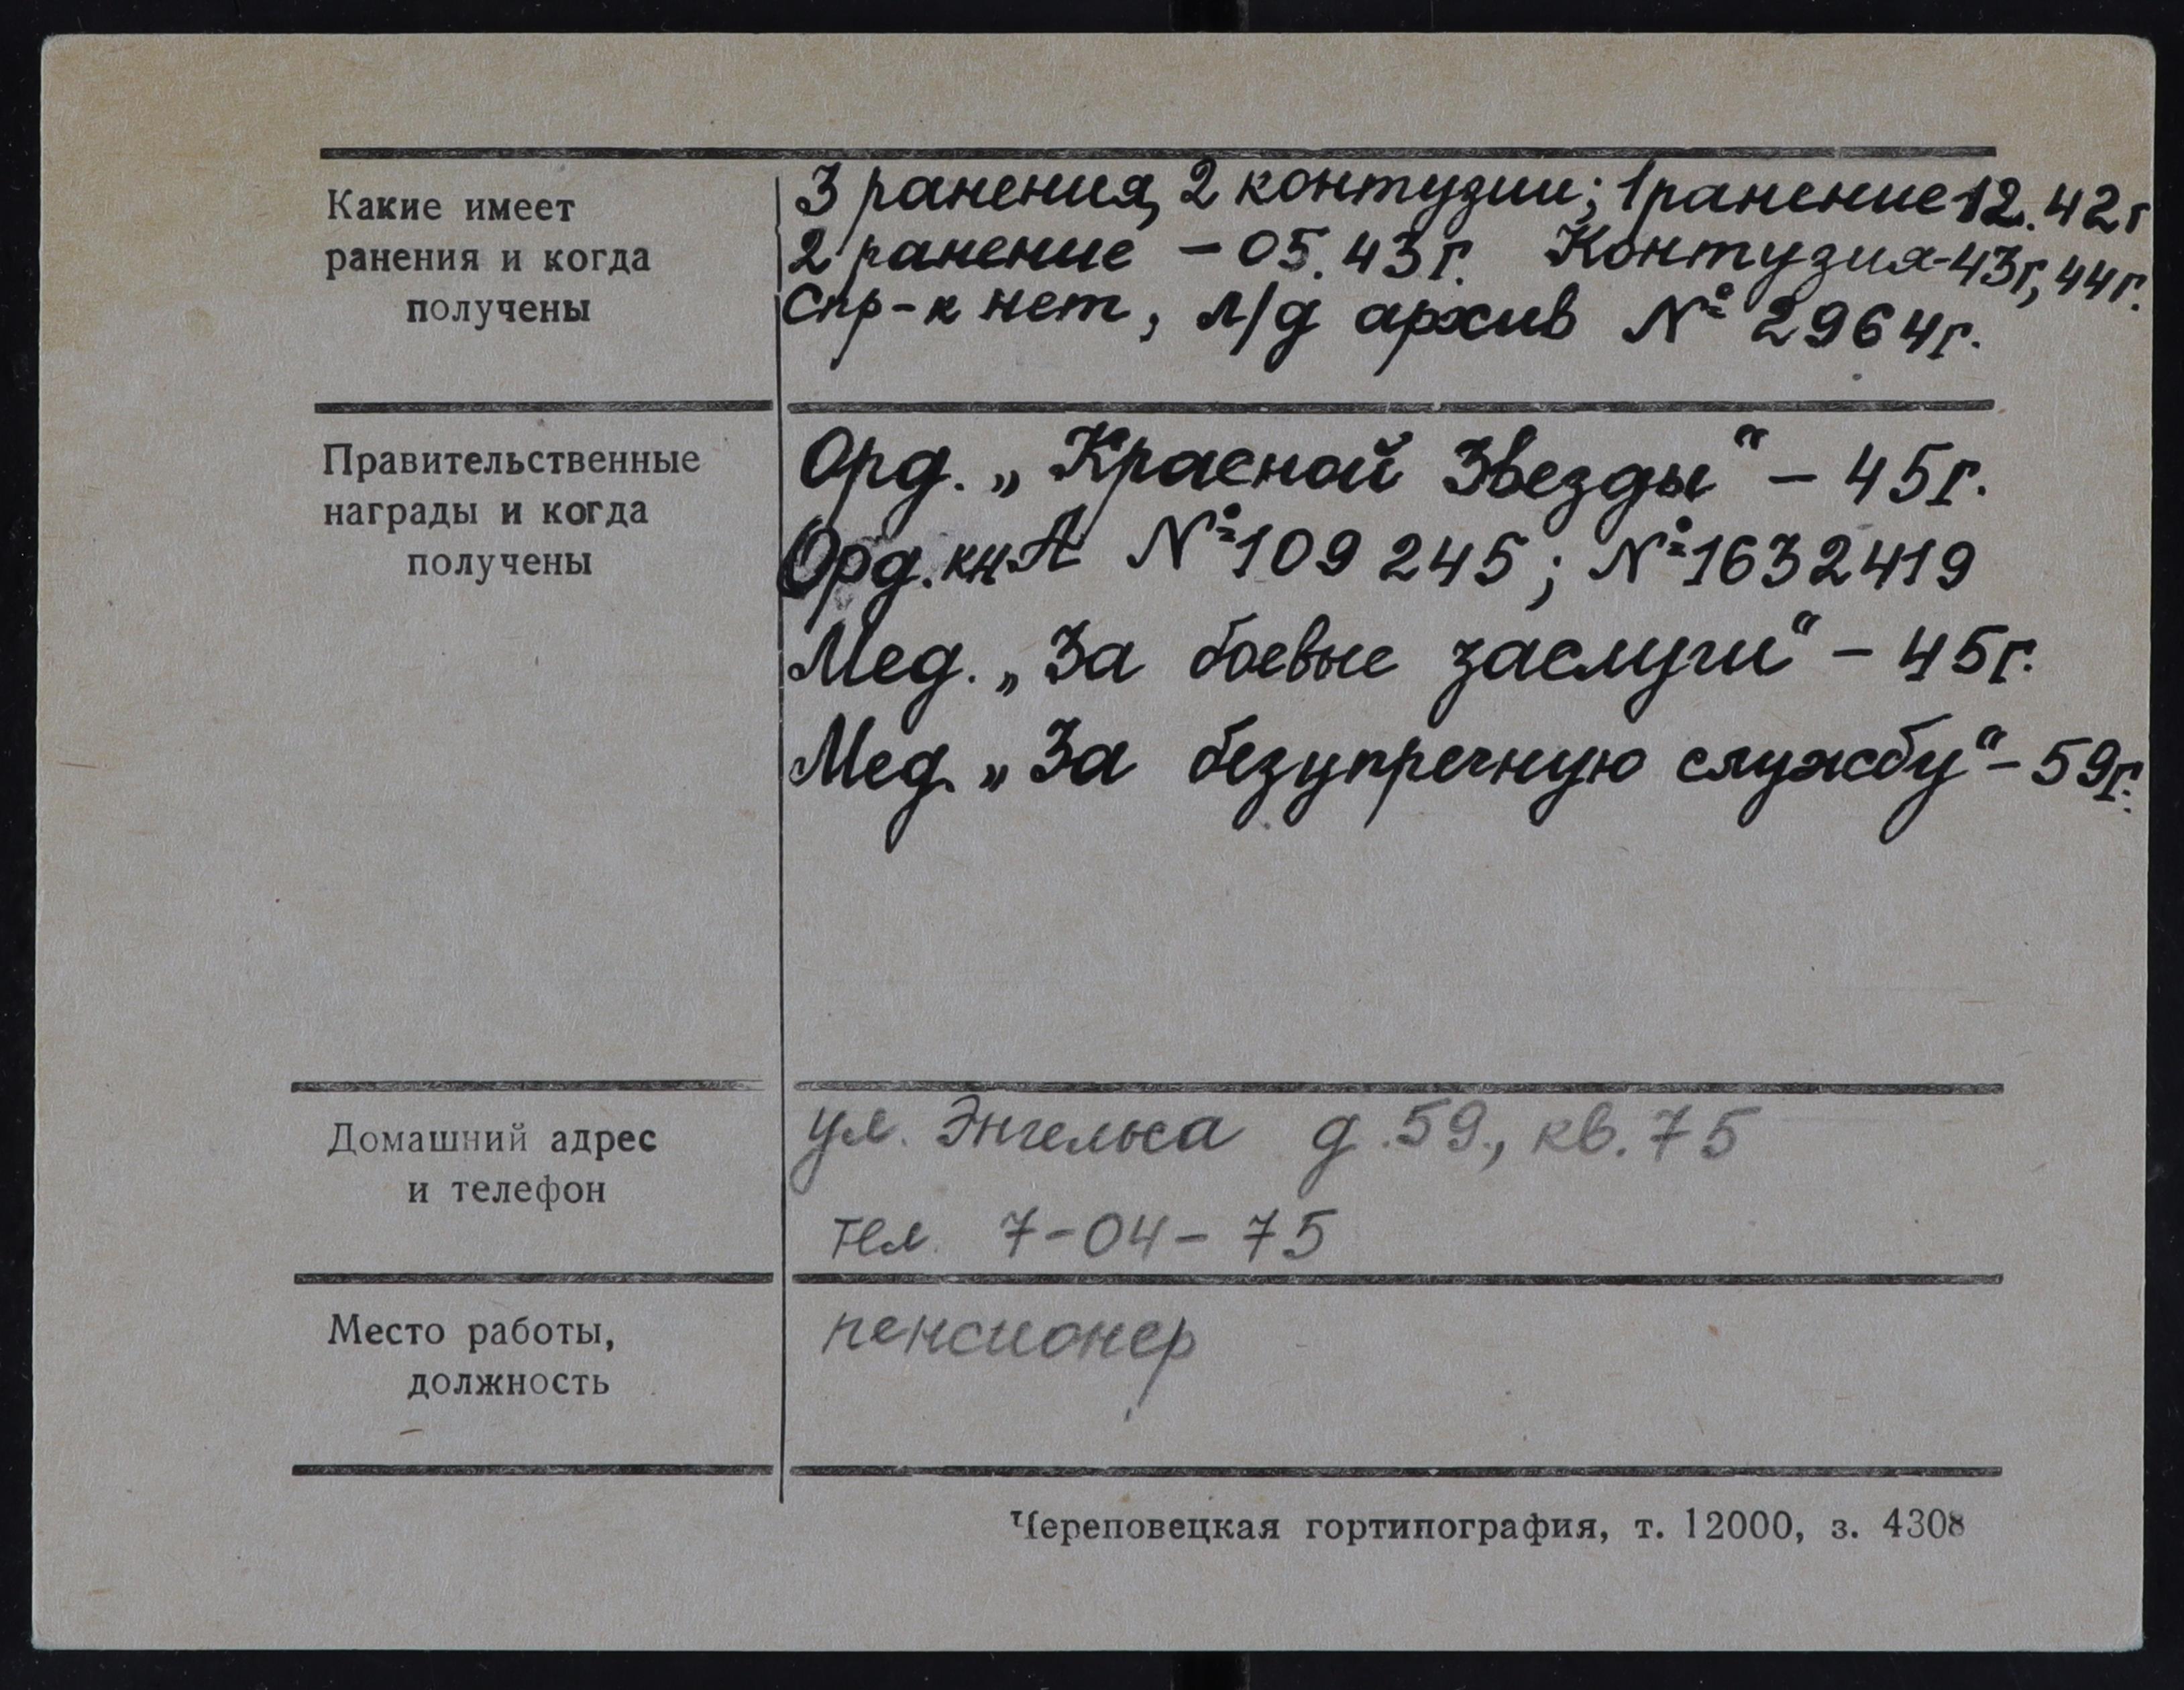 Какие имеет
ранения и когда
получены
3 ранения, 2 контузии; 1 ранение 12.42г
2 ранение – 05.43г. Контузия-43г, 44г.
Спр-к нет, л/д архив № 2964г.
Правительственные
награды и когда
получены
Орд. „Красной Звезды“ – 45г.
Орд. кн А № 109 245; № 1632419
Мед. „За боевые заслуги“ – 45г.
Мед. „За безупречную службу“ – 59г.
Домашний адрес
и телефон
ул. Энгельса д. 59., кв. 75
тел. 7-04-75
Место работы,
должность
пенсионер
Череповецкая гортипография, т. 12000, з. 4308